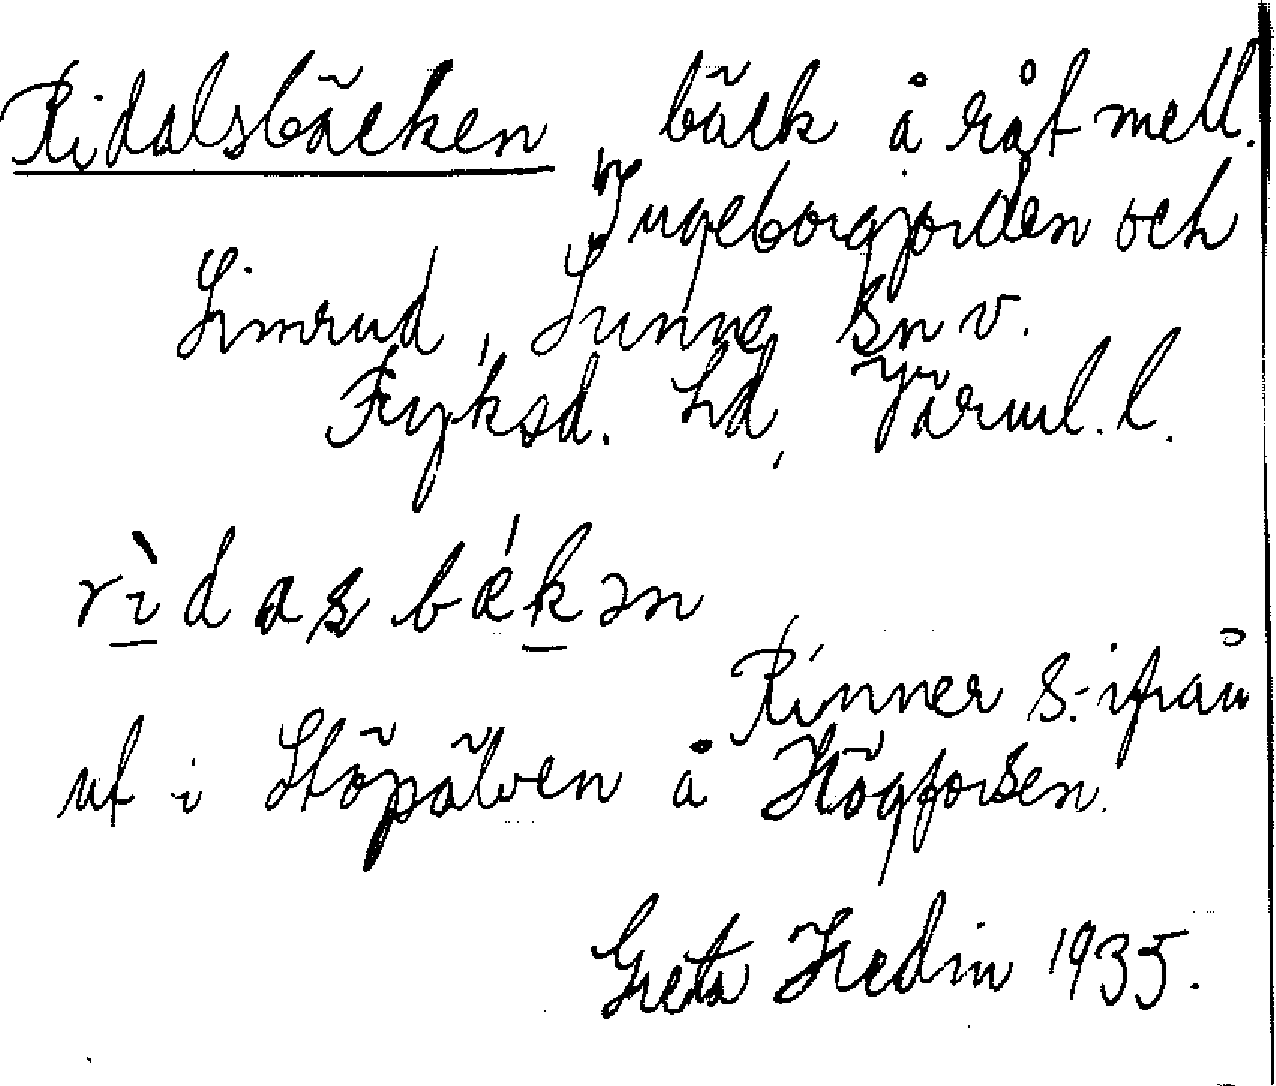 Ridalsbäcken, bäck å råt mell.
Ingeborgjorden och
Limrud, Sunne sn v.
Fryksd. hd, Värml. l.
rìdasbǽkən
Rinner s. ifrån
ut i Stöpälven å Högforsen.
Greta Hedin 1935.